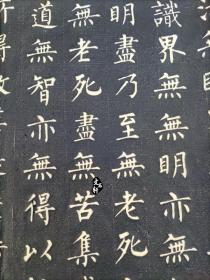 識界無無明亦無
明盡乃至無老死
無老死盡無苦集
道無智亦無得以
得故